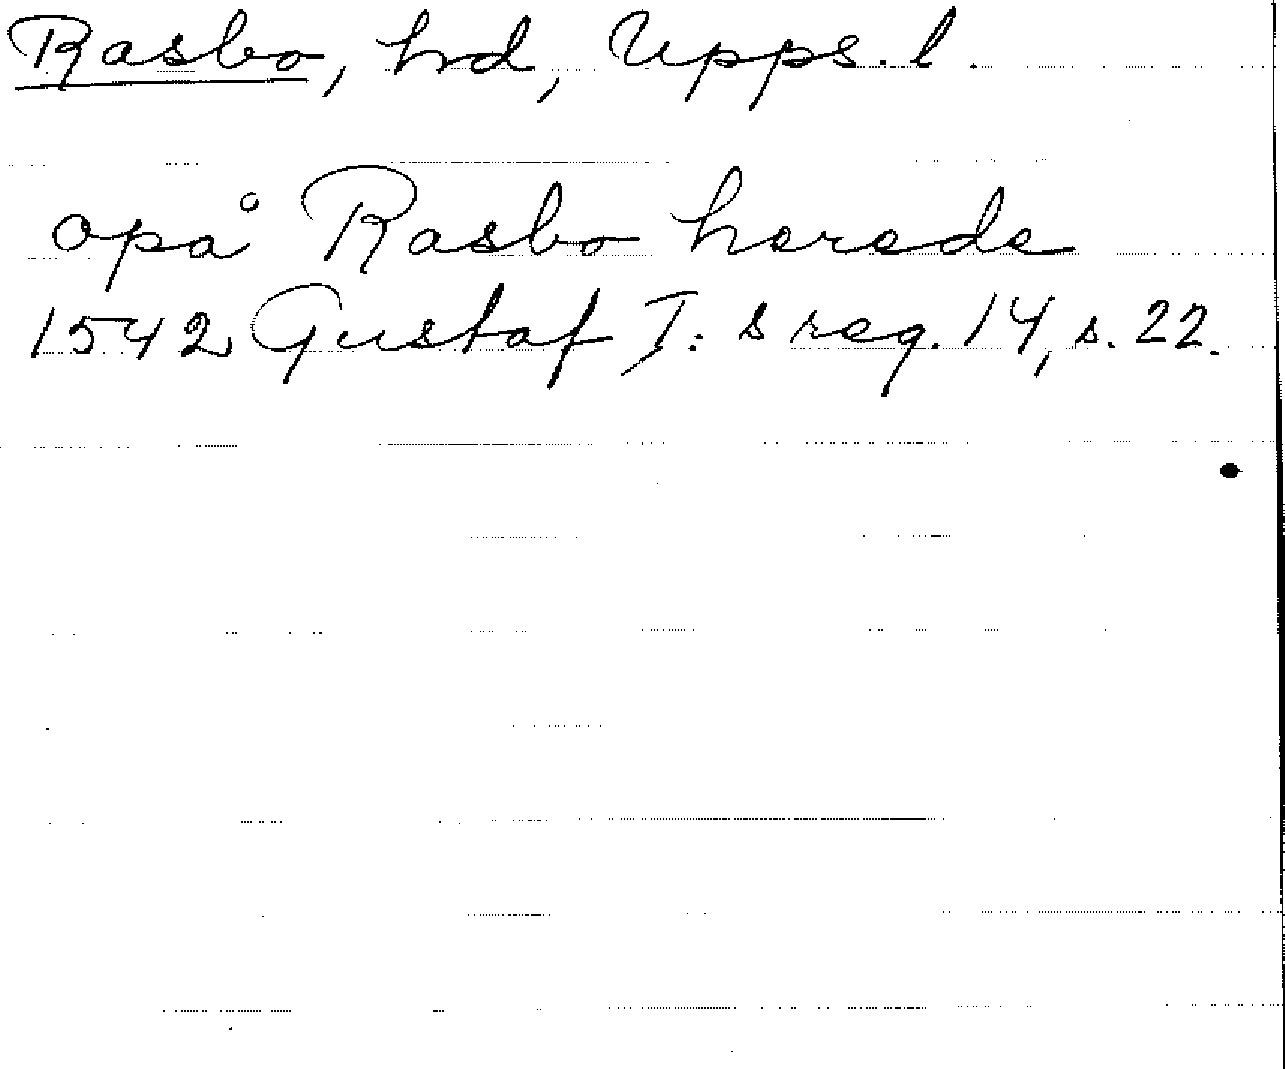 Rasbo, hrd, Upps. l.
opå Rasbo herede
1542 Gustaf I: s reg. 14, s. 22.